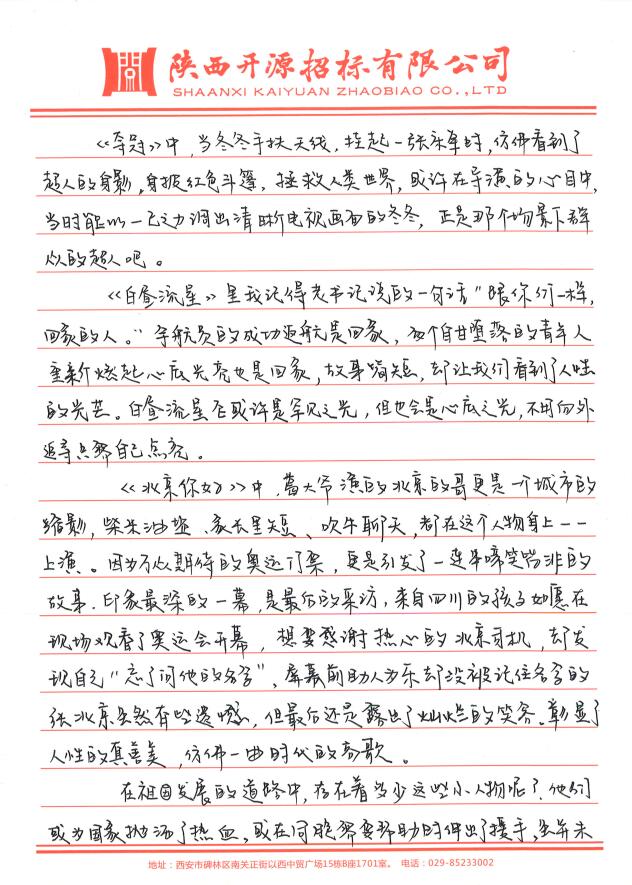 陕西开源招标有限公司
SHAANXI KAIYUAN ZHAOBIAO CO.,LTD
《夺冠》中,当冬冬手扶天线,挂起一张床单时,仿佛看到了
超人的身影,身披红色斗篷,拯救人类世界,或许在导演的心目中,
当时能以一己之力调出清晰电视画面的冬冬,正是那个场景下群
众的超人吧。
《白昼流星》里我记得老书记说的一句话"跟你们一样,
回家的人。"宇航员的成功返航是回家,两个自甘堕落的青年人
重新燃起心底光亮也是回家,故事简短,却让我们看到了人性
的光芒。白昼流星或许是罕见之光,但也会是心底之光,不用向外
追寻只需自己点亮。
《北京你好》中,葛大爷演的北京的哥更是一个城市的
缩影,柴米油盐、家长里短、吹牛聊天,都在这个人物身上一一
上演。因为不众期待的奥运门票,更是引发了一连串啼笑皆非的
故事.印象最深的一幕,是最后的采访,来自四川的孩子如愿在
现场观看了奥运会开幕,想要感谢热心的北京司机,却发
现自己"忘了问他的名字",屏幕前助人为乐却没被记住名字的
张北京虽然有些遗憾,但最后还是露出了灿烂的笑容.彰显了
人性的真善美,仿佛一曲时代的高歌。
在祖国发展的道路中,存在着多少这些小人物呢?他们
或为国家抛洒了热血,或在同胞需要帮助时伸出了援手,多年未
地址:西安市碑林区南关正街以西中贸广场15栋B座1701室。 电话:029-85233002